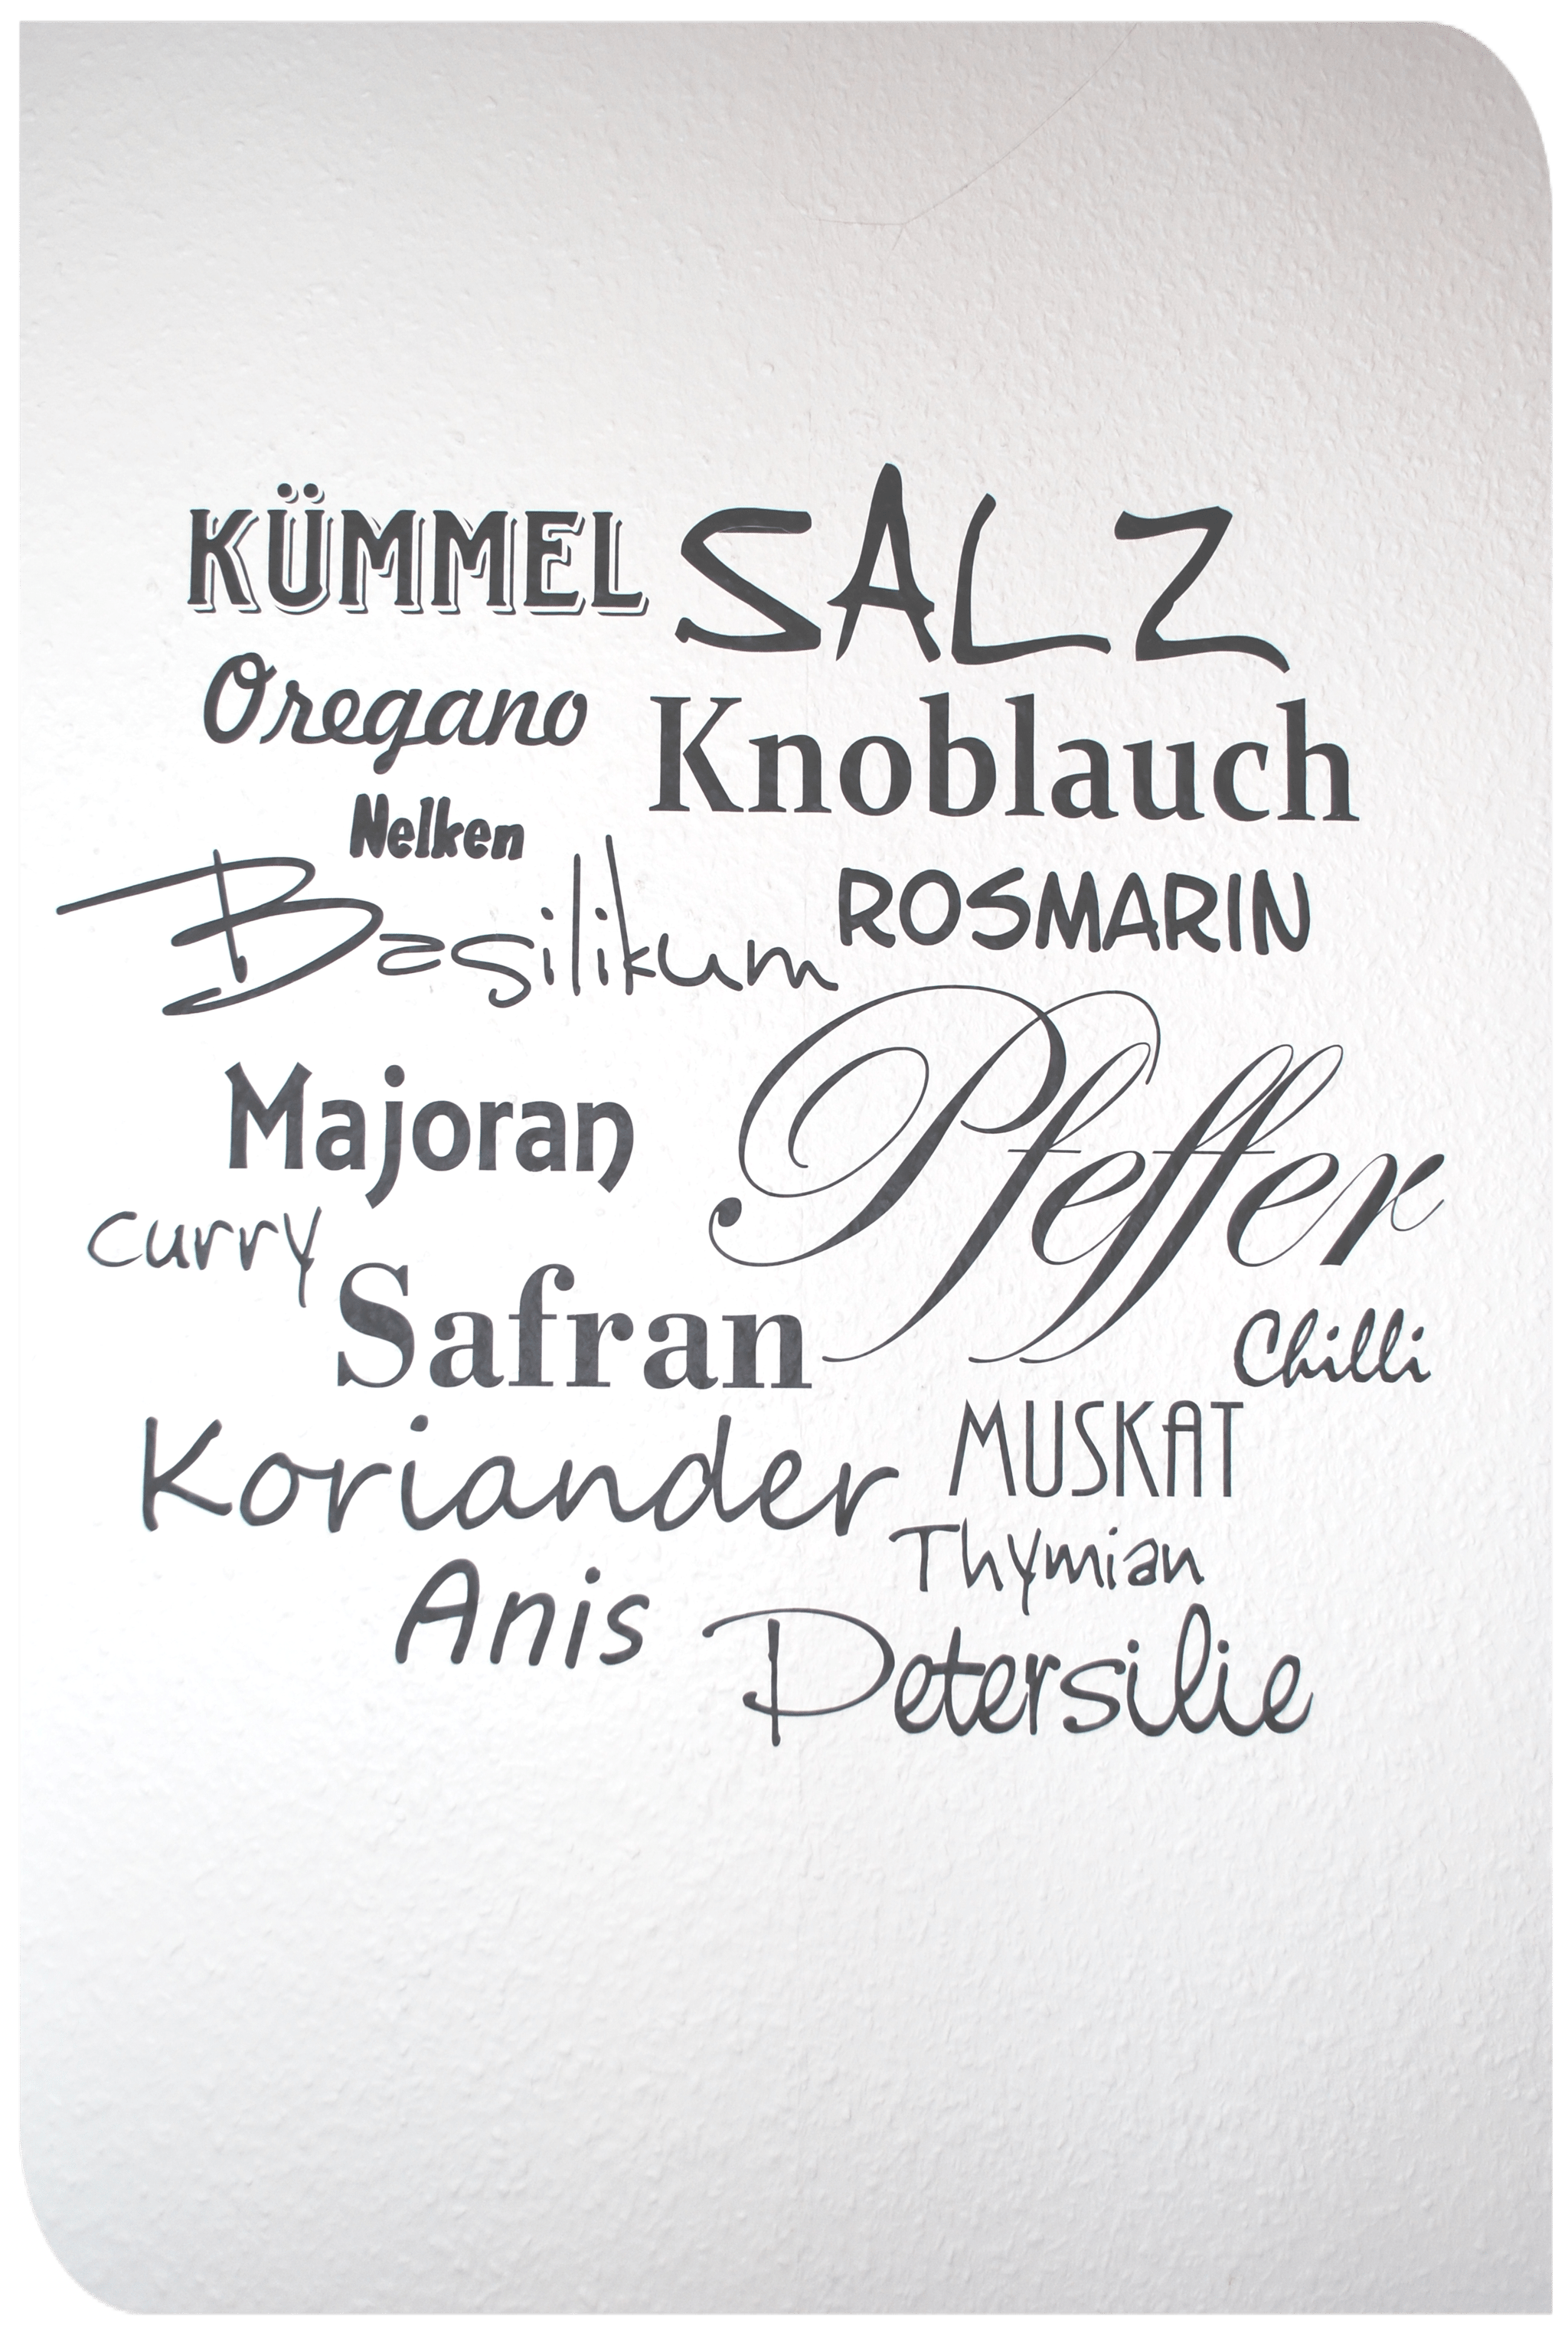 KÜMMEL SALZ
Oregano
Knoblauch
Nelken
Basilikum
ROSMARIN
Majoran
Pfeffer
curry
Safran
Chilli
Koriander
MUSKAT
Thymian
Anis
Petersilie